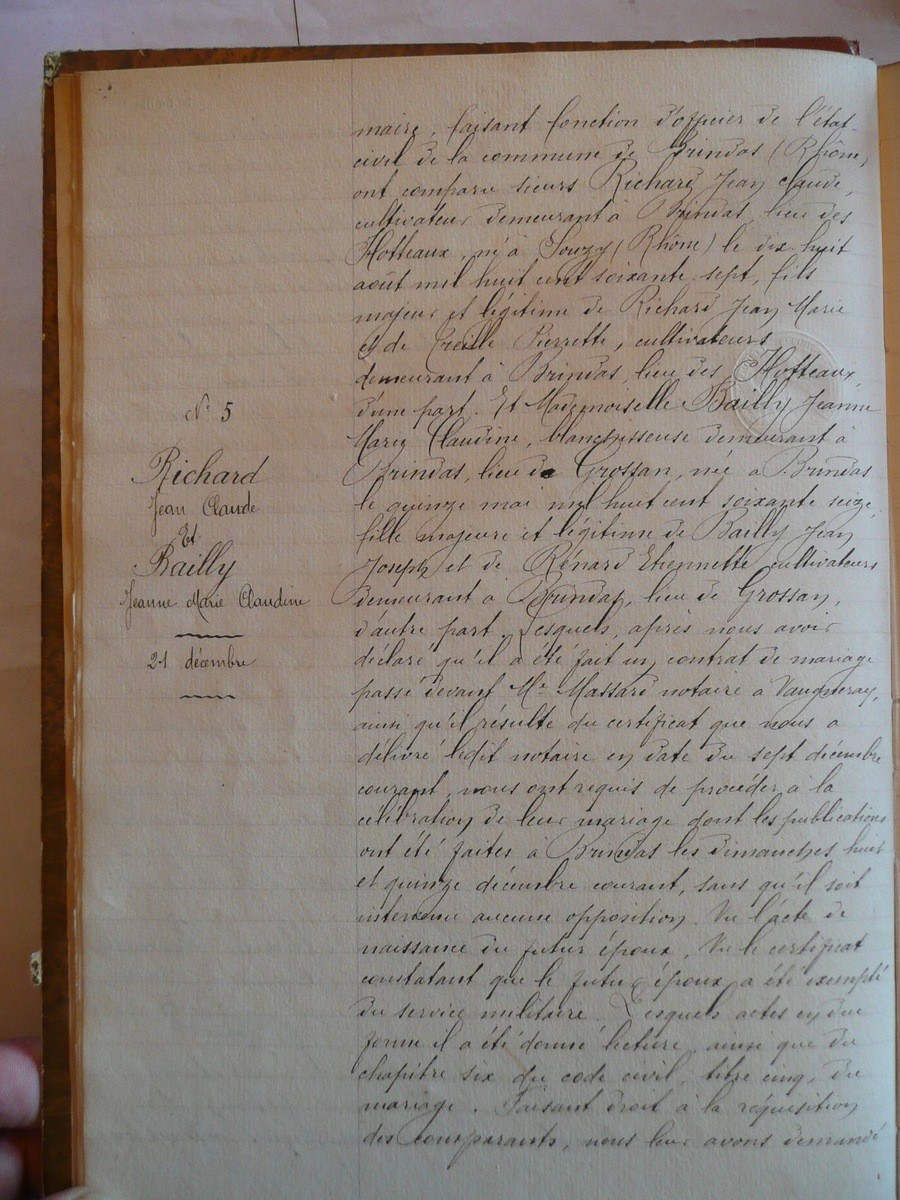 maire, faisant fonction d'officier de l'état-
civil de la commune de Brindas (Rhône)
ont comparu sieurs Richard Jean Claude,
cultivateur demeurant à Brindas, lieu des
Hotteaux, né à Souzy (Rhône) le dix huit
août mil huit cent soixante sept, fils
majeur et légitime de Richard Jean Marie
et de Creille Pierrette, cultivateurs
demeurant à Brindas, lieu des Hotteaux,
d'une part. Et Mademoiselle Bailly Jeanne
Marie Claudine, blanchisseuse demeurant à
Brindas, lieu de Grossan, née à Brindas
le quinze mai mil huit cent soixante seize,
fille majeure et légitime de Bailly Jean
Joseph et de Rénard Etiennette cultivateurs
demeurant à Brindas, lieu de Grossan,
d'autre part. Lesquels, après nous avoir
déclaré qu'il a été fait un contrat de mariage
passé devant Me Massard notaire à Vaugneray,
ainsi qu'il résulte du certificat que nous a
délivré ledit notaire en date du sept décembre
courant, nous ont requis de procéder à la
célébration de leur mariage dont les publications
ont été faites à Brindas les dimanches huit
et quinze décembre courant, sans qu'il soit
intervenu aucune opposition. Vu l'acte de
naissance du futur époux, Vu le certificat
constatant que le futur époux a été exempté
du service militaire. Lesquels actes en due
forme il a été donné lecture, ainsi que du
chapitre six du code civil, titre cinq, du
mariage. Faisant droit à la réquisition
des comparants, nous leur avons demandé
N° 5
Richard
Jean Claude
Et
Bailly
Jeanne Marie Claudine
21 décembre